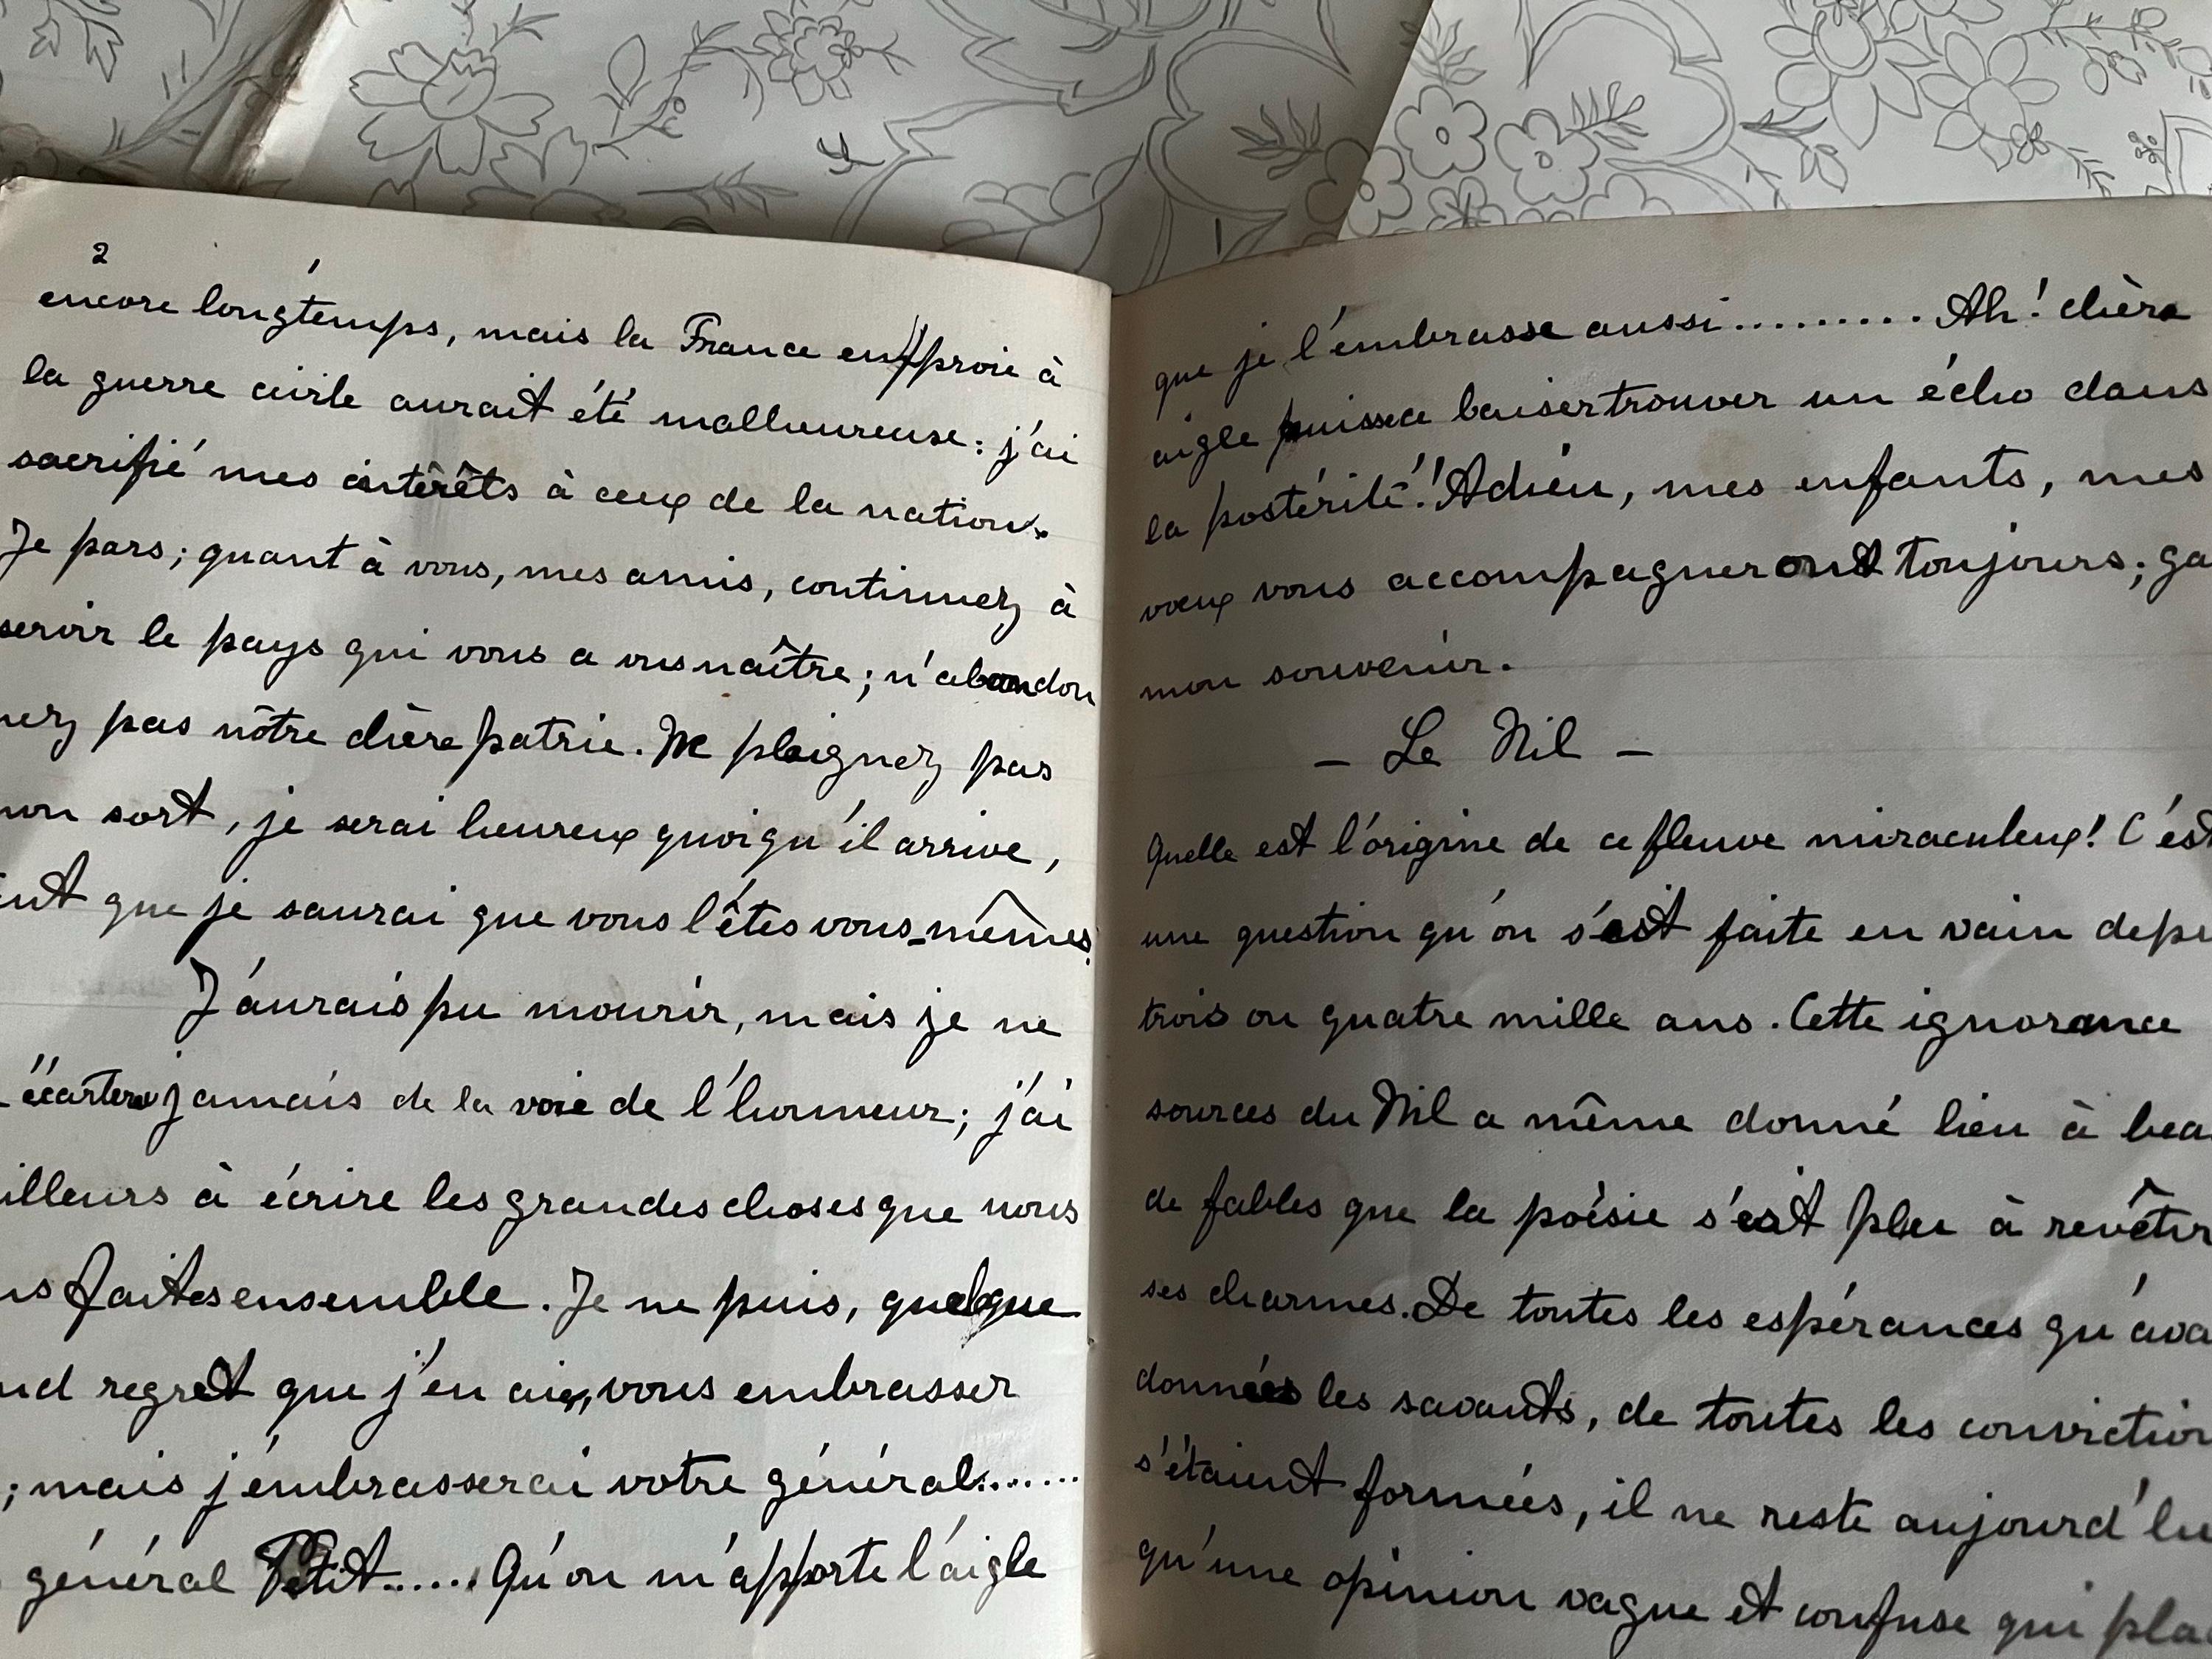 2
encore longtemps, mais la France en proie à
la guerre civile aurait été malheureuse: j'ai
sacrifié mes intérêts à ceux de la nation.
Je pars; quant à vous, mes amis, continuez à
servir le pays qui vous a vus naître; n'abandon
nez pas nôtre chère patrie. Ne plaignez pas
mon sort, je serai heureux quoiqu'il arrive,
ant que je saurai que vous l'êtes vous-mêmes.
J'aurais pu mourir, mais je ne
écarterai jamais de la voie de l'honneur; j'ai
illeurs à écrire les grandes choses que nous
ns faites ensemble. Je ne puis, quelque
nd regret que j'en aie, vous embrasser
; mais j'embrasserai votre général.......
général Petit..... Qu'on m'apporte l'aigle
que je l'embrasse aussi......... Ah! chère
aigle puisse ce baiser trouver un écho dans
la postérité! Adieu, mes enfants, mes
vœux vous accompagneront toujours; ga
mon souvenir.
- Le Nil -
Quelle est l'origine de ce fleuve miraculeux! C'est
une question qu'on s'est faite en vain depu
trois ou quatre mille ans. Cette ignorance
sources du Nil a même donné lieu à bea
de fables que la poésie s'est plu à revêtir
ses charmes. De toutes les espérances qu'ava
données les savants, de toutes les conviction
s'étaient formées, il ne reste aujourd'hu
qu'une opinion vague et confuse qui pla